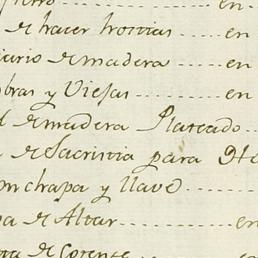 en
de hacer hostias en
de madera en
bras y Viejas en
de madera Plateado
de Sacristia para
chapa y llave
de Altar en
de Corente